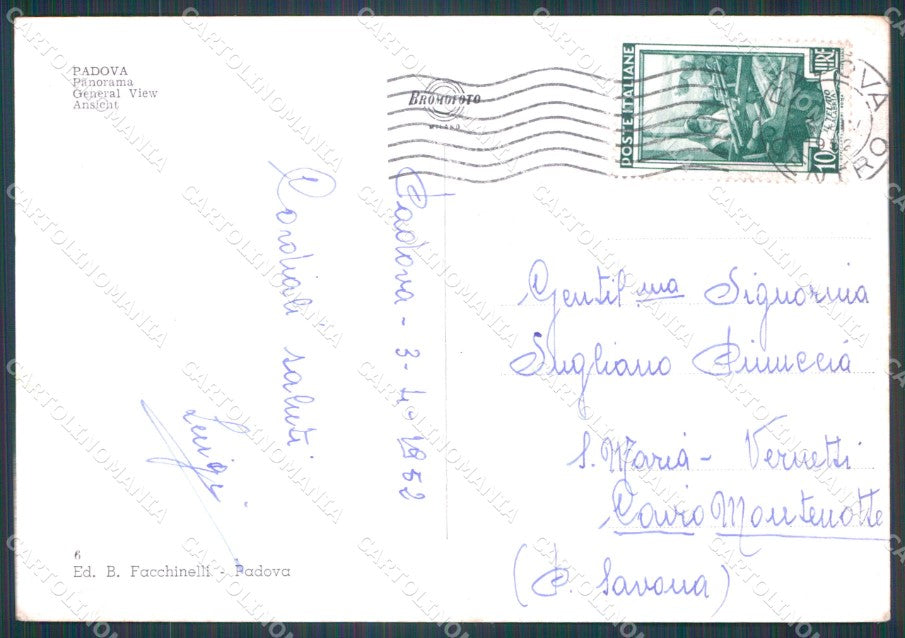 PADOVA
Panorama
General View
Ansicht
BROMOFOTO
MILANO
POSTE ITALIANE
LIRE
10
Padova - 3-4-1952
Cordiali saluti
Luigi
Gentil.ma Signorina
Sugliano Pinuccia
S. Maria - Vernetti
Cairo Montenotte
(P. Savona)
6
Ed. B. Facchinelli - Padova
CARTOLINOMANIA